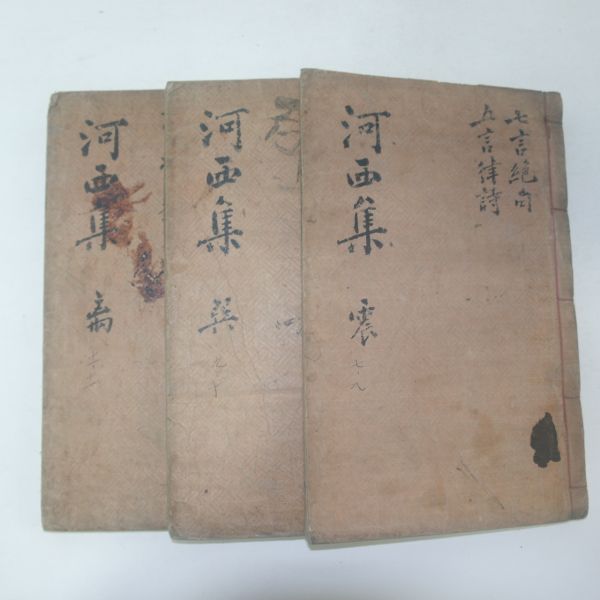 七言絶句
五言律詩
河西集 震
七·八
河西集 巽
九·十
河西集 离